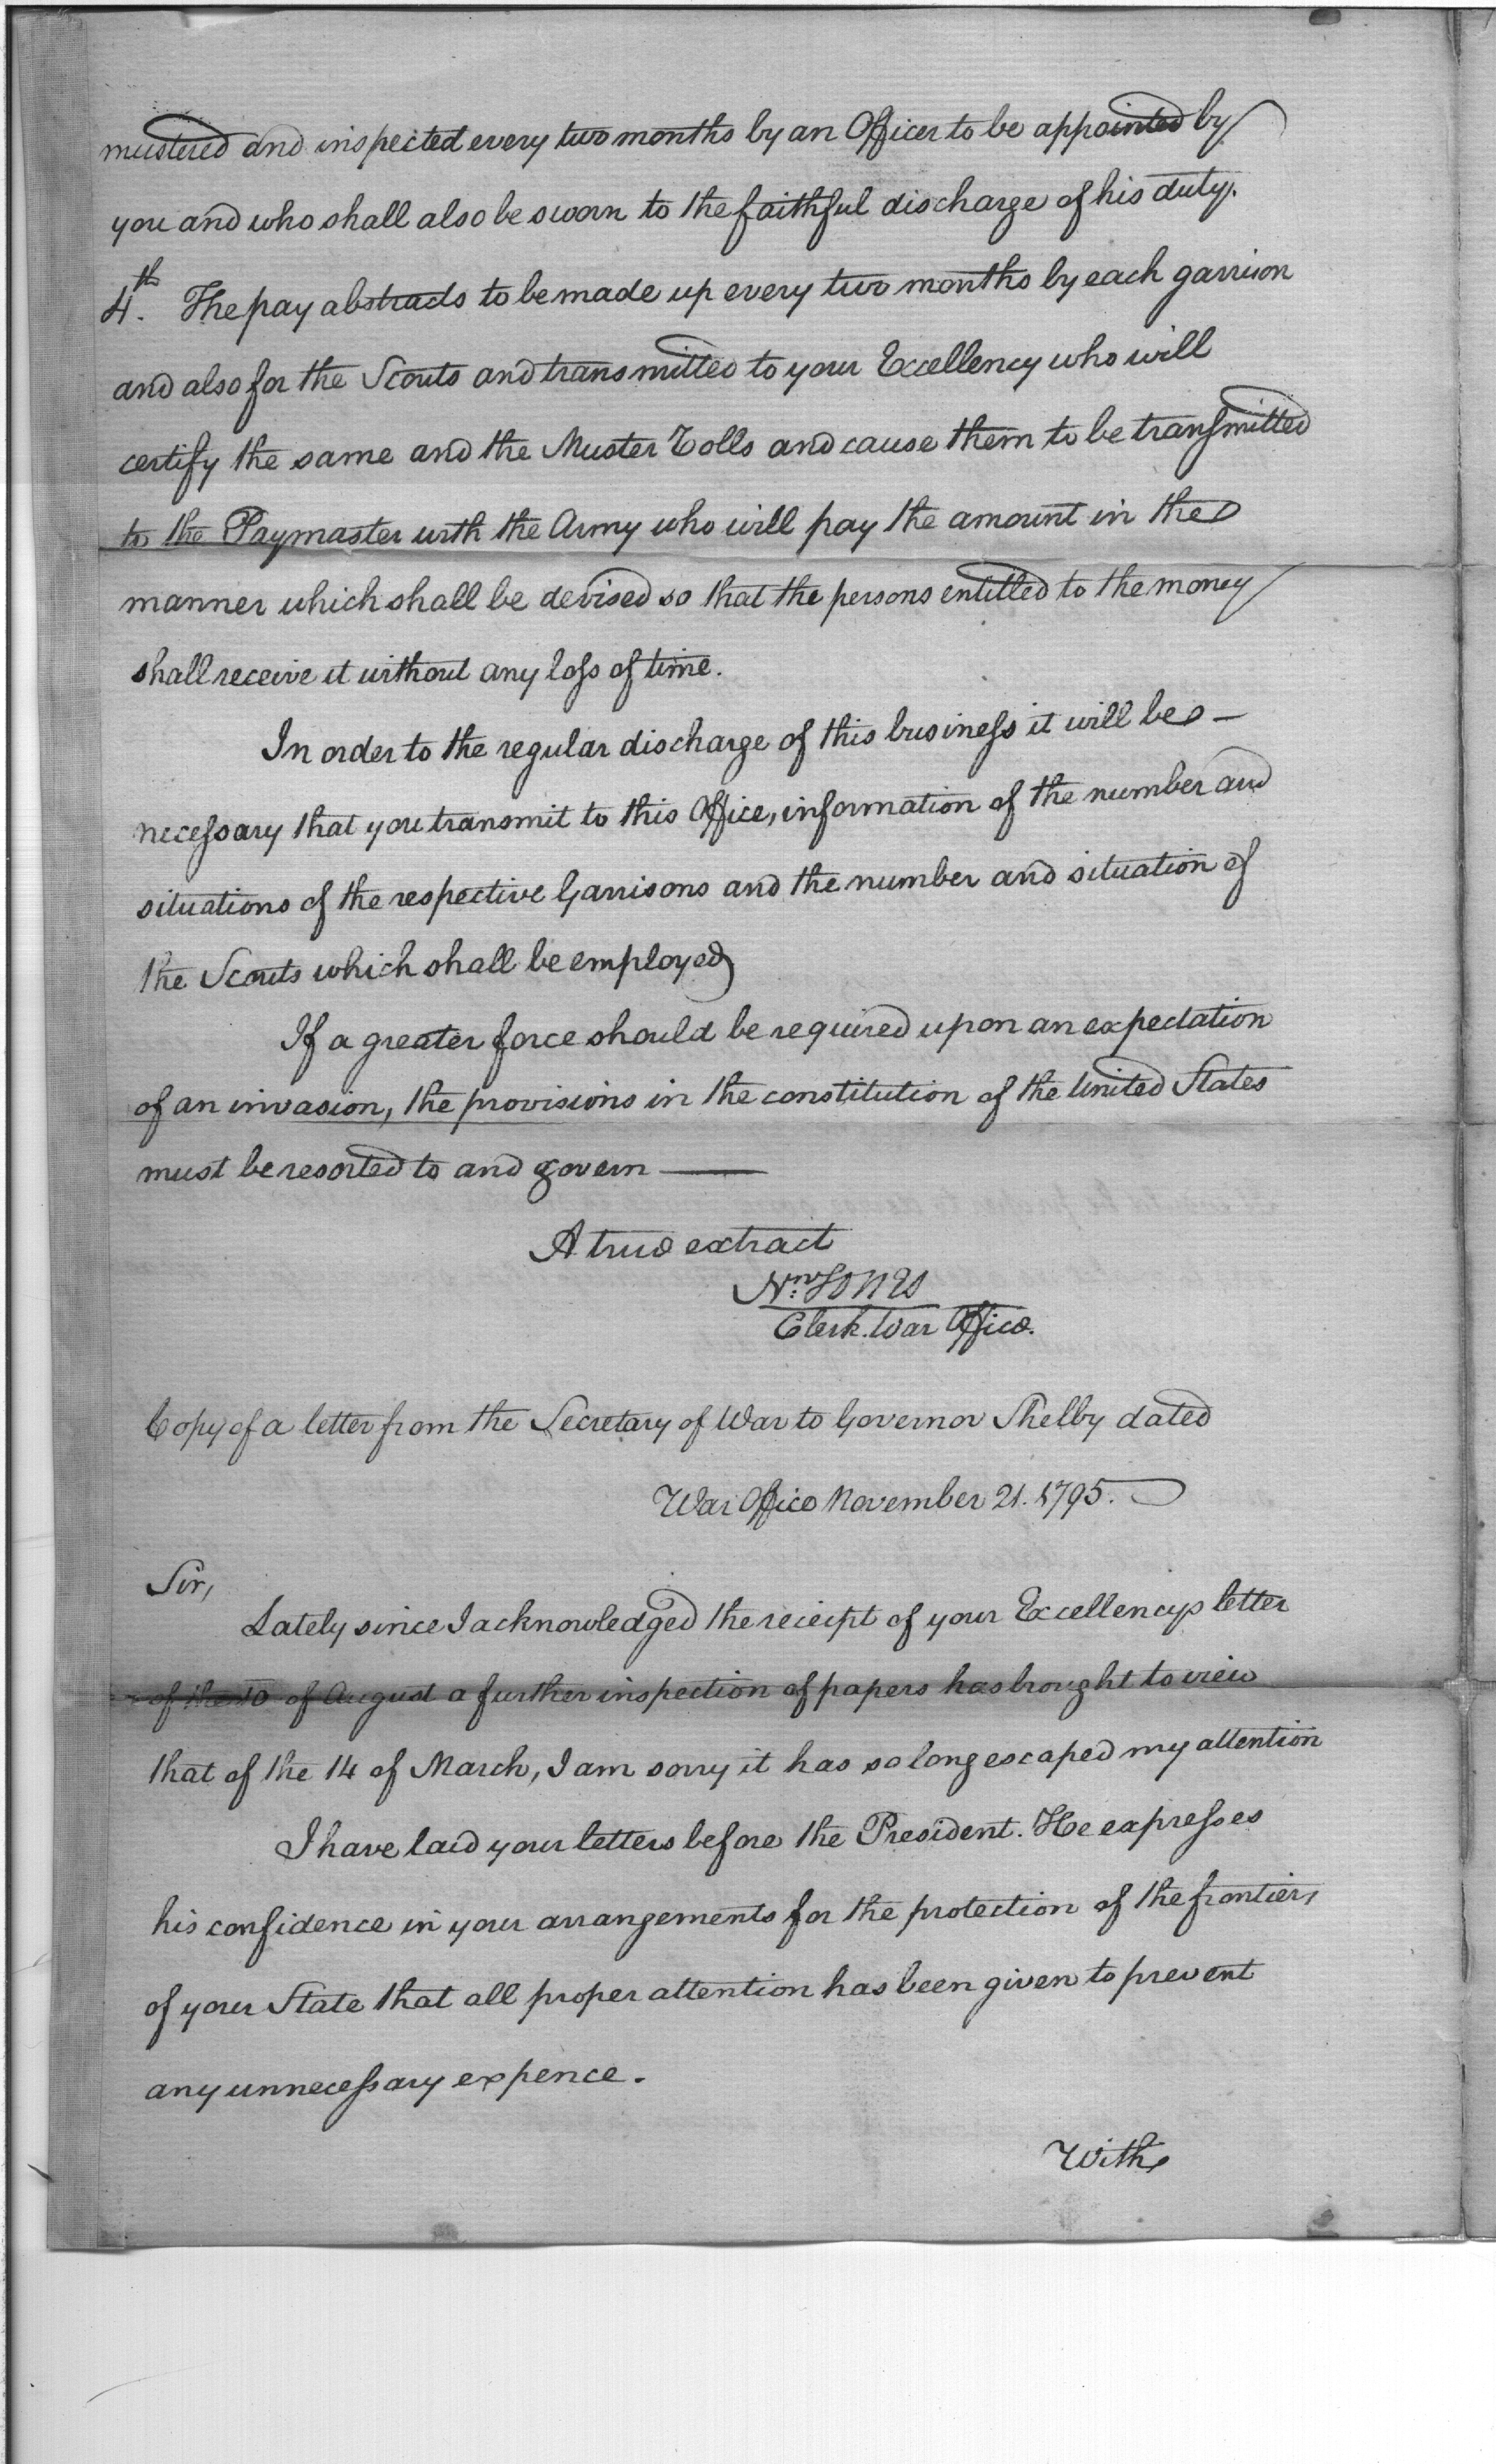 mustered and inspected every two months by an Officer to be appointed by
you and who shall also be sworn to the faithful discharge of his duty.
4th. The pay abstracts to be made up every two months by each garrison
and also for the Scouts and transmitted to your Excellency who will
certify the same and the Muster Rolls and cause them to be transmitted
to the Paymaster with the Army who will pay the amount in the
manner which shall be devised so that the persons entitled to the money
shall receive it without any loss of time.
In order to the regular discharge of this business it will be —
necessary that you transmit to this Office, information of the number and
situations of the respective Garrisons and the number and situation of
the Scouts which shall be employed
If a greater force should be required upon an expectation
of an invasion, the provisions in the constitution of the United States
must be resorted to and govern ——
A true extract
Nn. Jones
Clerk. War Office.
Copy of a letter from the Secretary of War to Governor Shelby dated
War Office November 21. 1795.
Sir,
Lately since I acknowledged the reciept of your Excellencys letter
of the 10 of August a further inspection of papers has brought to view
that of the 14 of March, I am sorry it has so long escaped my attention
I have laid your letters before the President. He expresses
his confidence in your arrangements for the protection of the frontiers
of your State that all proper attention has been given to prevent
any unnecessary expence.
With